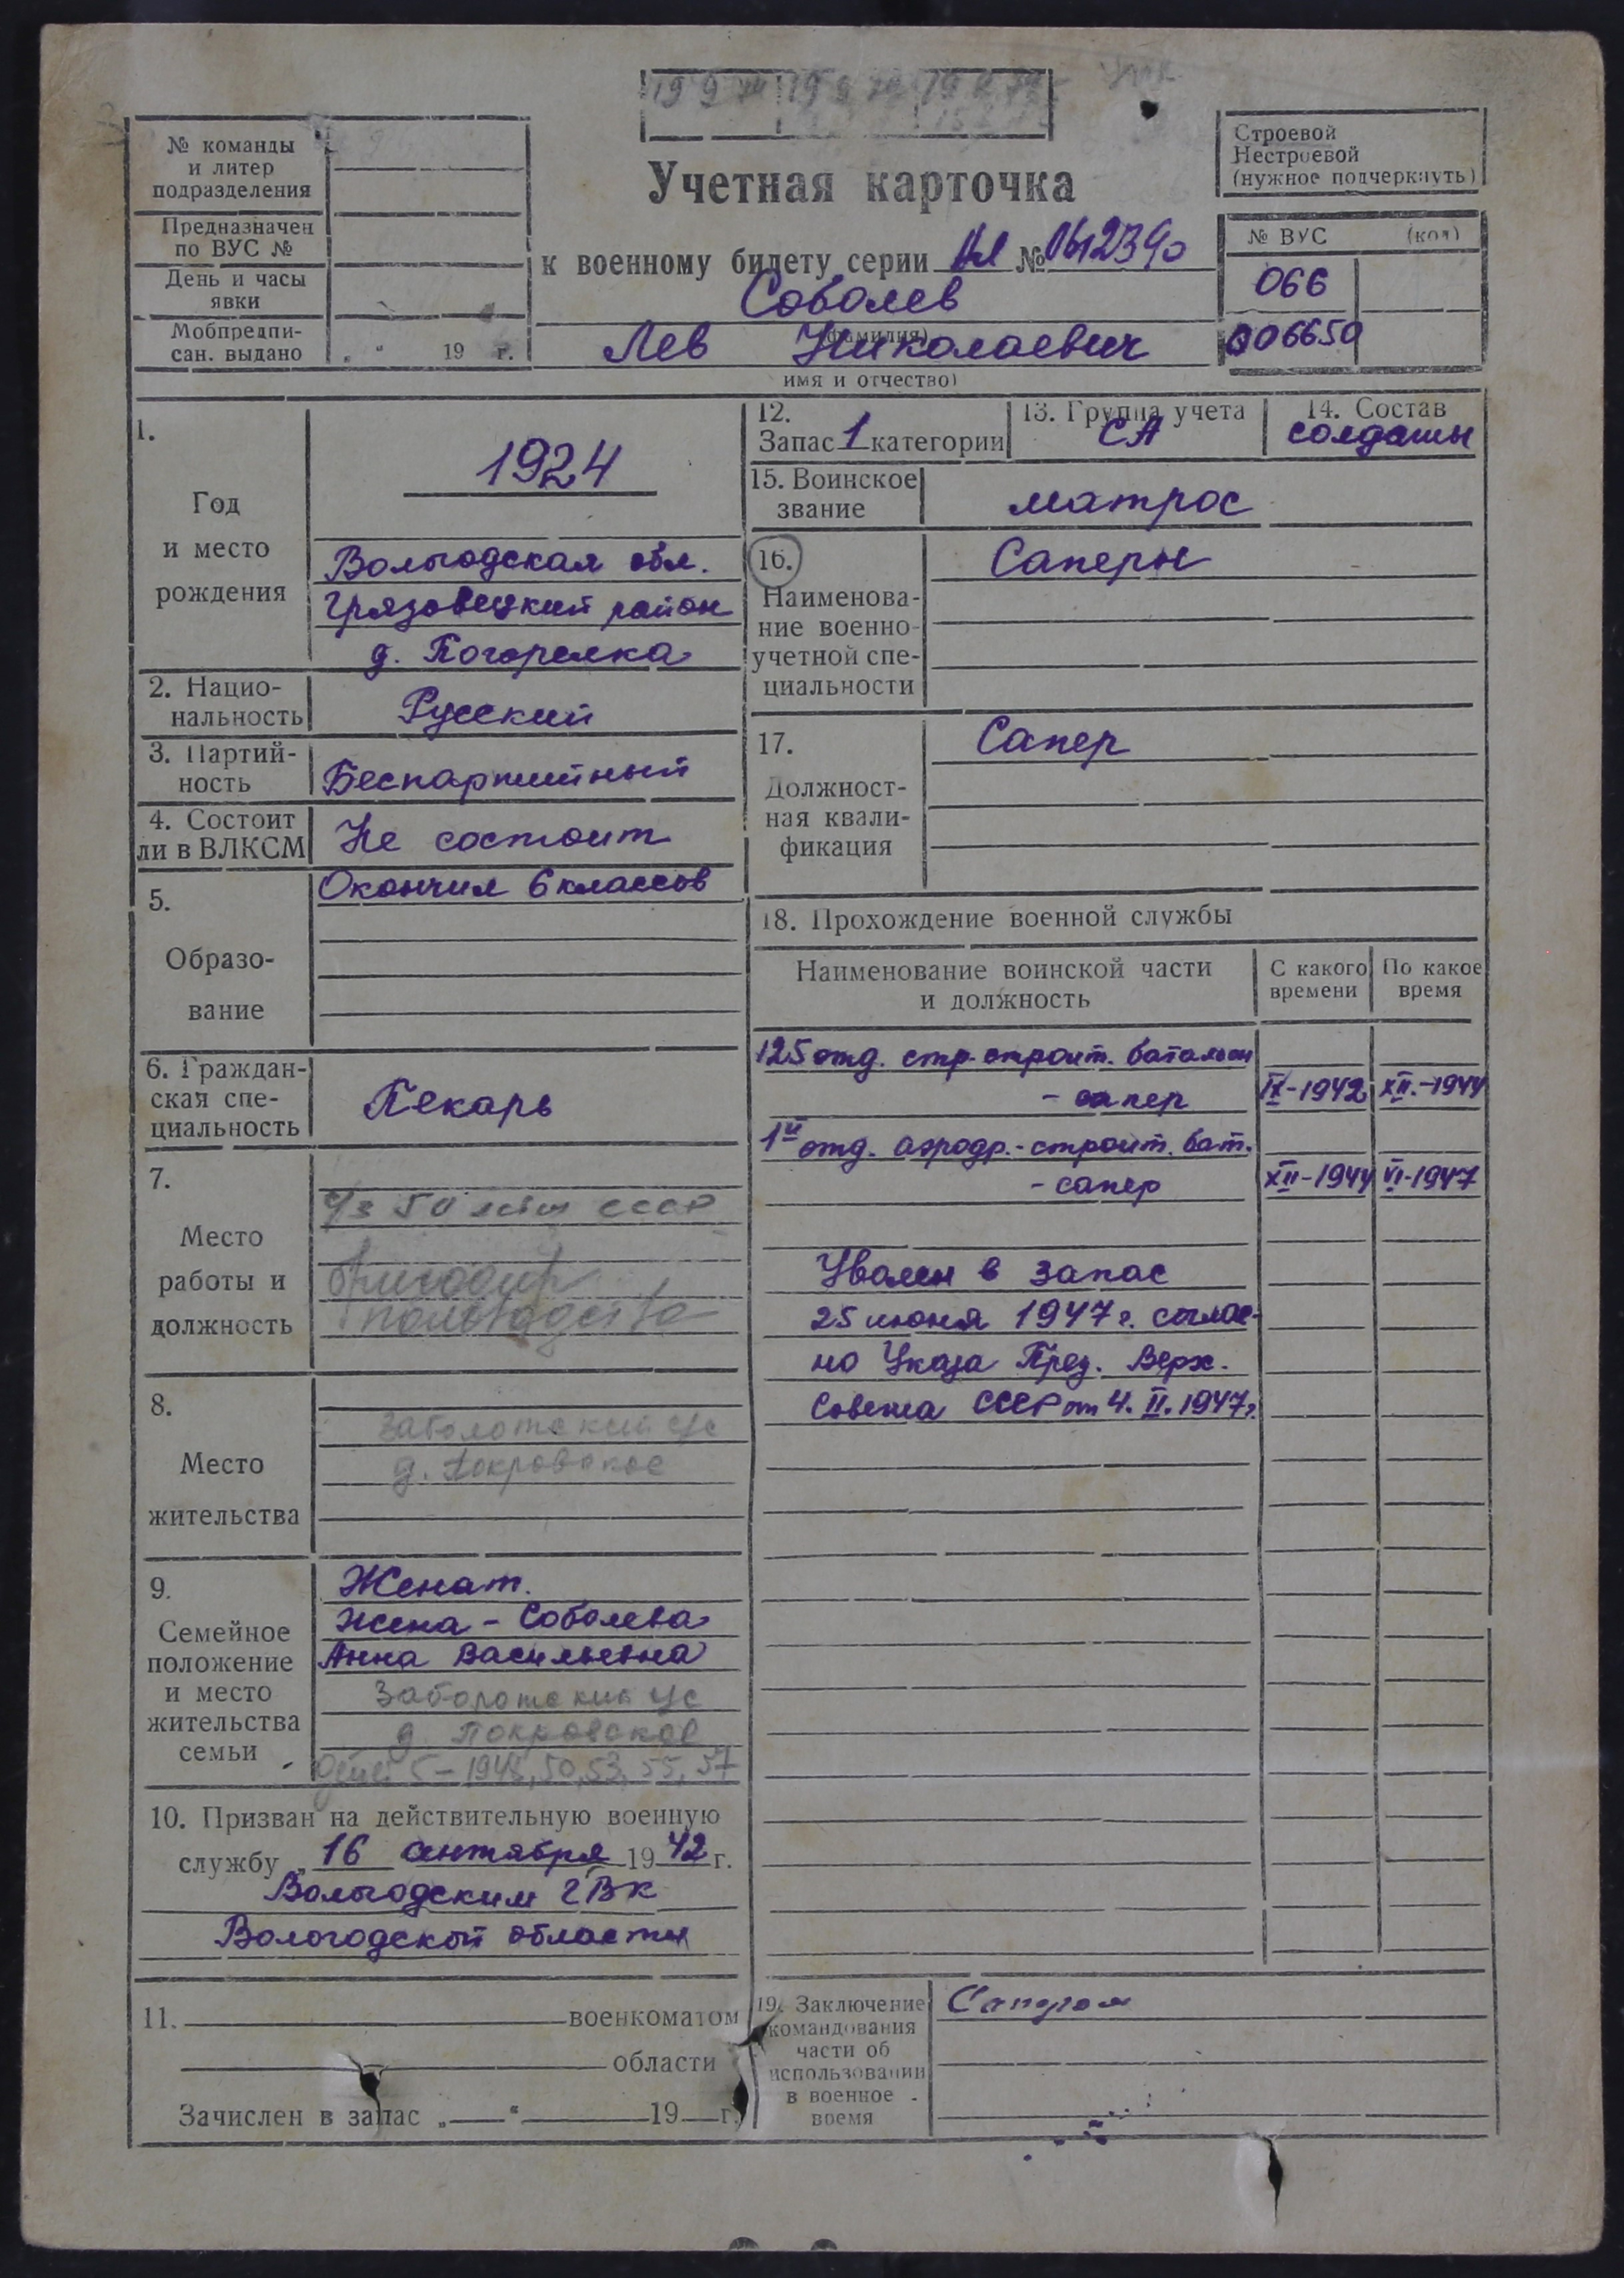 № команды
и литер
подразделения
Предназначен
по ВУС №
День и часы
явки
Мобпредпи-
сан. выдано „ “ 19 г.
Учетная карточка
к военному билету серии № 0612390
Соболев
(фамилия)
Лев Николаевич
имя и отчество)
Строевой
Нестроевой
(нужное подчеркнуть)
№ ВУС (код)
066
006650
1.
Год
и место
рождения
1924
Вологодская обл.
Грязовецкий район
д. Погорелка
2. Нацио-
нальность
Русский
3. Партий-
ность
Беспартийный
4. Состоит
ли в ВЛКСМ
Не состоит
5.
Образо-
вание
Окончил 6 классов
6. Граждан-
ская спе-
циальность
Пекарь
7.
Место
работы и
должность
50 лет СССР
бригадир
8.
Место
жительства
Заболотский с/с
д. Покровское
9.
Семейное
положение
и место
жительства
семьи
Женат.
Жена - Соболева
Анна Васильевна
Заболотский с/с
д. Покровское
детей 5 - 1948, 50, 53, 55, 57
10. Призван на действительную военную
службу „ 16 сентября 1942 г.
Вологодским ГВК
Вологодской области
11. военкоматом
области
Зачислен в запас „ “ 19 г.
12.
Запас 1 категории
13. Группа учета
СА
14. Состав
солдаты
15. Воинское
звание
матрос
16.
Наименова-
ние военно-
учетной спе-
циальности
Саперы
17.
Должност-
ная квали-
фикация
Сапер
18. Прохождение военной службы
Наименование воинской части
и должность
С какого
времени
По какое
время
125 отд. стр. строит. батальон
- сапер IX-1942 XII.-1944
1й отд. аэродр.-строит. бат.
- сапер XII-1944 VI-1947
Уволен в запас
25 июня 1947 г. соглас-
но Указа През. Верх.
Совета СССР от 4. II. 1947 г.
19. Заключение
командования
части об
использовании
в военное
время
Сапером